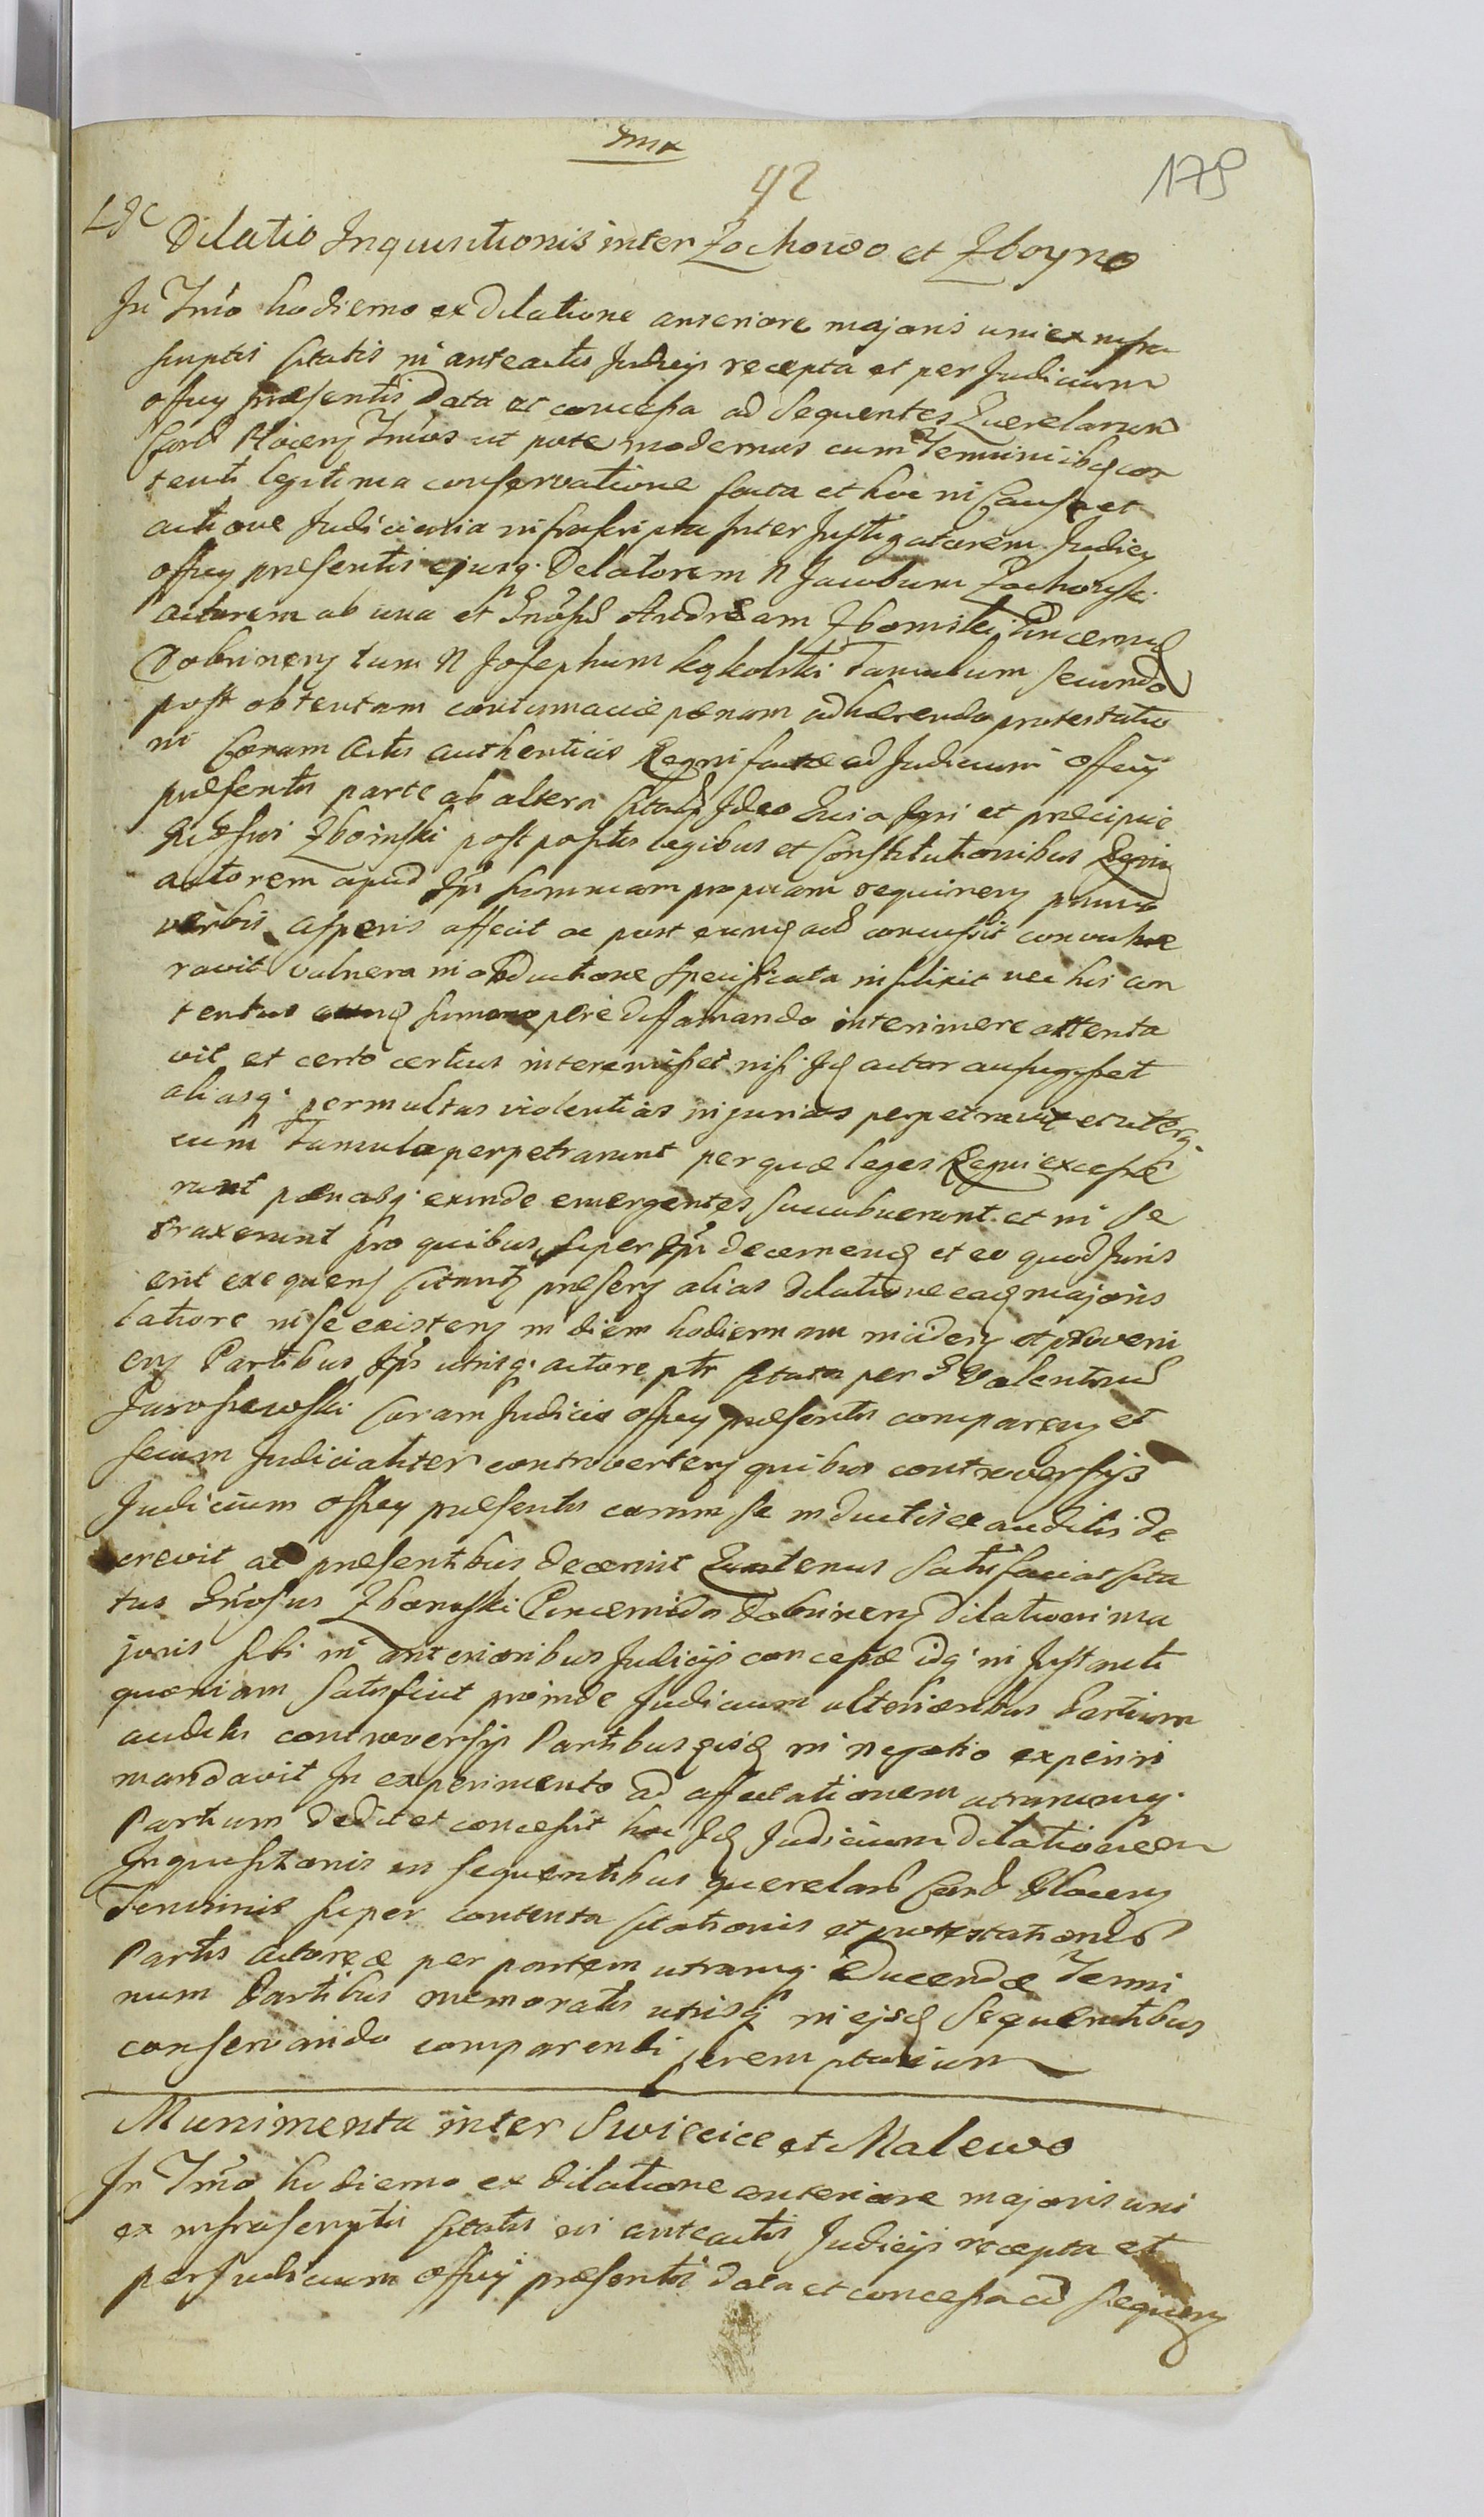 42
179
Dilatio Inquisitionis inter Zochowo et Zboyno
In Tmo hodierno ex Dilatione anteriore majoris uni ex infra
scriptis Citatis in anteactis Judicijs recepta et per Judicium
Officij præsentis Data et concessa ad Sequentes Querelarum
Cast Plocen Tmos ut pote modernos cum Terminis ibq con
tenti legitima conservatione facta et hoc in Causa et
actione Judiciaria infrascripta Inter Instigatorem Judicij
Officij præsentis ejusq. Delatorem N Jacobum Zochowski
actorem ab una et Gnosu Andream Zboinski Pincernid
Dobrinen tum N Josephum Kękolski Famulum secundo
post obtentam contumaciæ pœnam adhærendo protestatio
ni Coram Actis authenticis Regni factæ ad Judicium Officij
præsentis parte ab altera Citatos Ideo Quia Ipsi et præcipue
Gnosus Zboinski post positis legibus et Constitutionibus Regni
actorem apud summam propriam requiren primo
verbis asperis affecit ac post eund concussit convulne
ravit vulnera in obductione specificata inflixit nec his con
tentus eund summopere diffamando interimere attenta
vit et certo certius interemisset nisi Id actor aufugisset
aliasq. permultas violentias injurias perpetravit et uterq.
cum Famulo perpetrarunt per quæ leges Regni excesse
runt pœnasq. exinde emergentes succubuerunt et in se
traxerunt pro quibus super decernend et eo quod Juris
erit exequen Citantr præsen alias dilatione ead majoris
latiore in se existen in diem hodiernam inciden et proveni
en Partibus utrisq. actore ptr Citato per G Valentinu
Jaroszewski Coram Judicio Officij præsentis comparen et
secum Judicialiter controverten quibus controversijs
Judicium Officij præsentis coram se inductis exauditis de
crevit ac præsentibus decernit Quatenus Satisfaciat Cita
tus Gnosus Zboinski Pincernida Dobrinen Dilationi ma
joris sibi in anterioribus Judicijs concessæ idq. in Instanti
quoniam Satisfecit proinde Judicium ulterioribus Partium
auditis controversijs Partibus eisd in negotio experiri
mandavit In experimento ad affectationem utrarumq.
Partium Dedit et concessit hoc Id Judicium dilationem
Inquisitionis in sequentibus querelar Cast Plocen
Terminis super contenta Citationis et protestationis
Partis actoreæ per partem utramq. educendæ Termi
num Partibus memoratis utrisq in ejsd Sequentibus
conservando comparendi peremptorium
Munimenta inter Swięcice et Malewo
In Tmo hodierno ex Dilatione anteriore majoris uni
ex infrascriptis Citatis in anteactis Judicijs recepta et
per Judicium Officij præsentis data et concessa ad Sequen